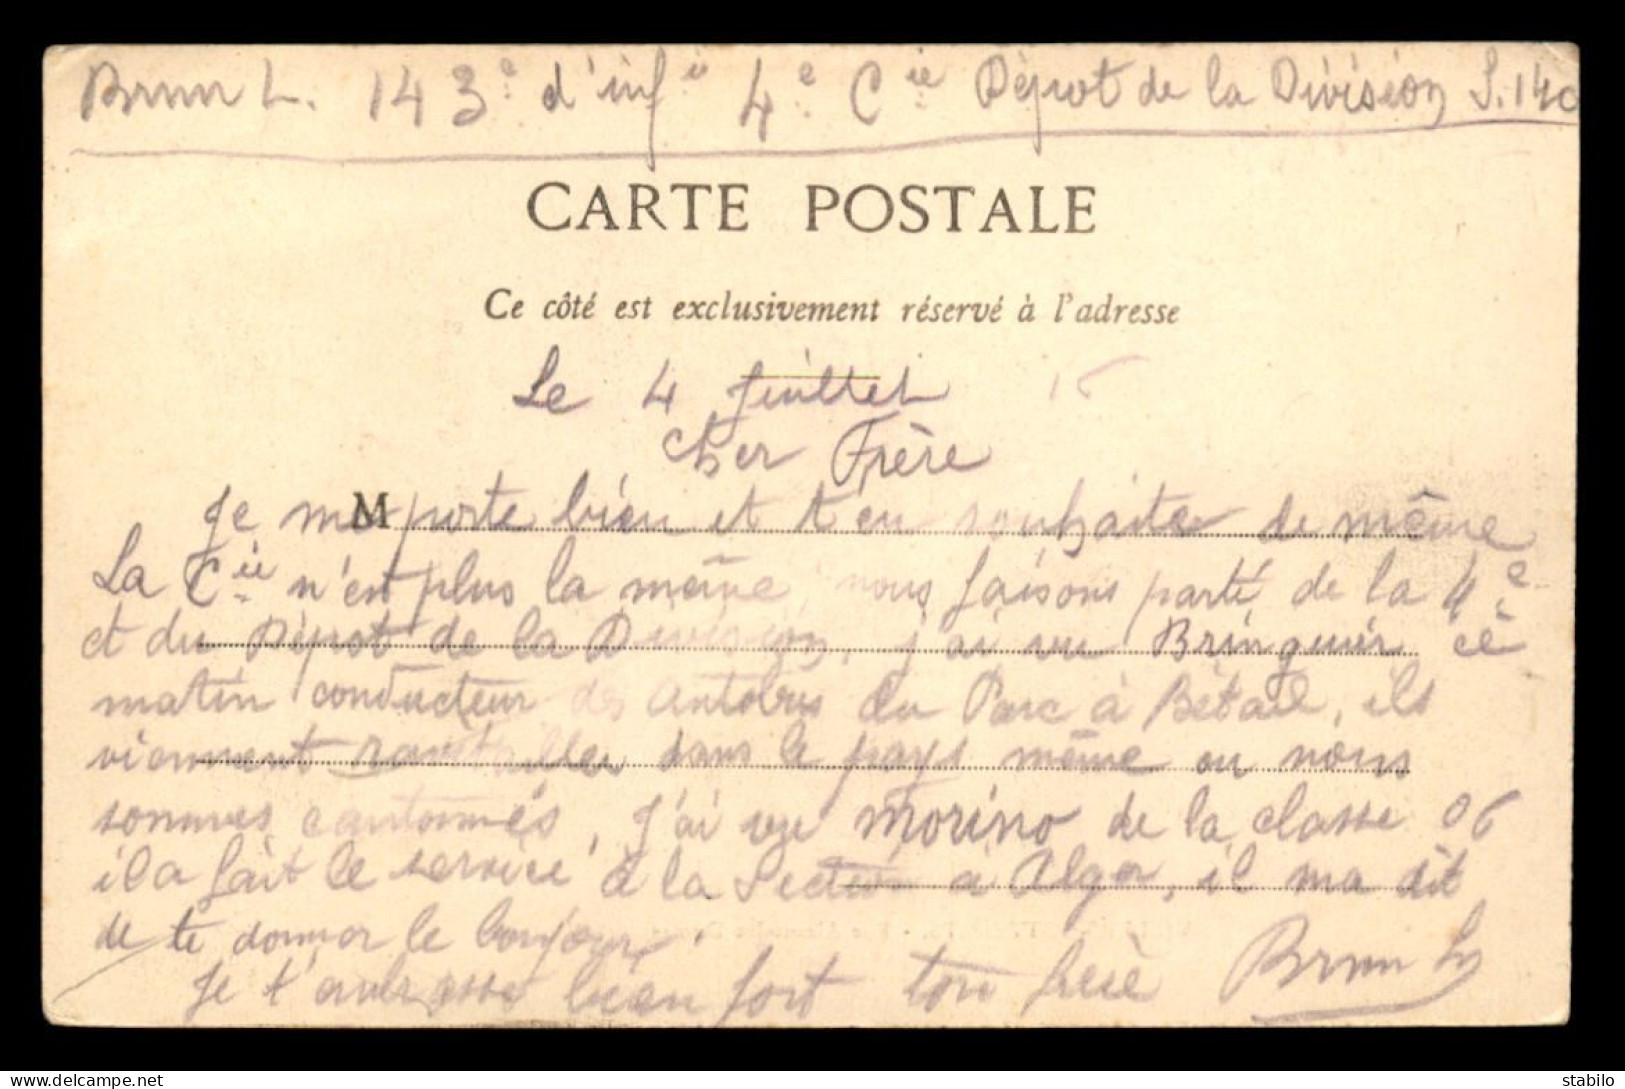 Brun L. 143e d'infie 4e Cie Dépot de la Division S. 140
CARTE POSTALE
Ce côté est exclusivement réservé à l'adresse
Le 4 Juillet 15
Cher Frère
M
Je me porte bien et t'en souhaite de même
La Cie n'est plus la même, nous faisons partie de la 4e
et du Dépot de la Division, j'ai vu Bringuier cé
matin conducteur des autobus du Parc à Bétail, ils
viennent ravitailler dans le pays même ou nous
sommes cantonnés, J'ai vu morino de la classe 06
il a fait le service à la Section à Alger, il ma dit
de te donner le bonjour
Je t'embrasse bien fort ton frère Brun L
stabilo - https://www.delcampe.net